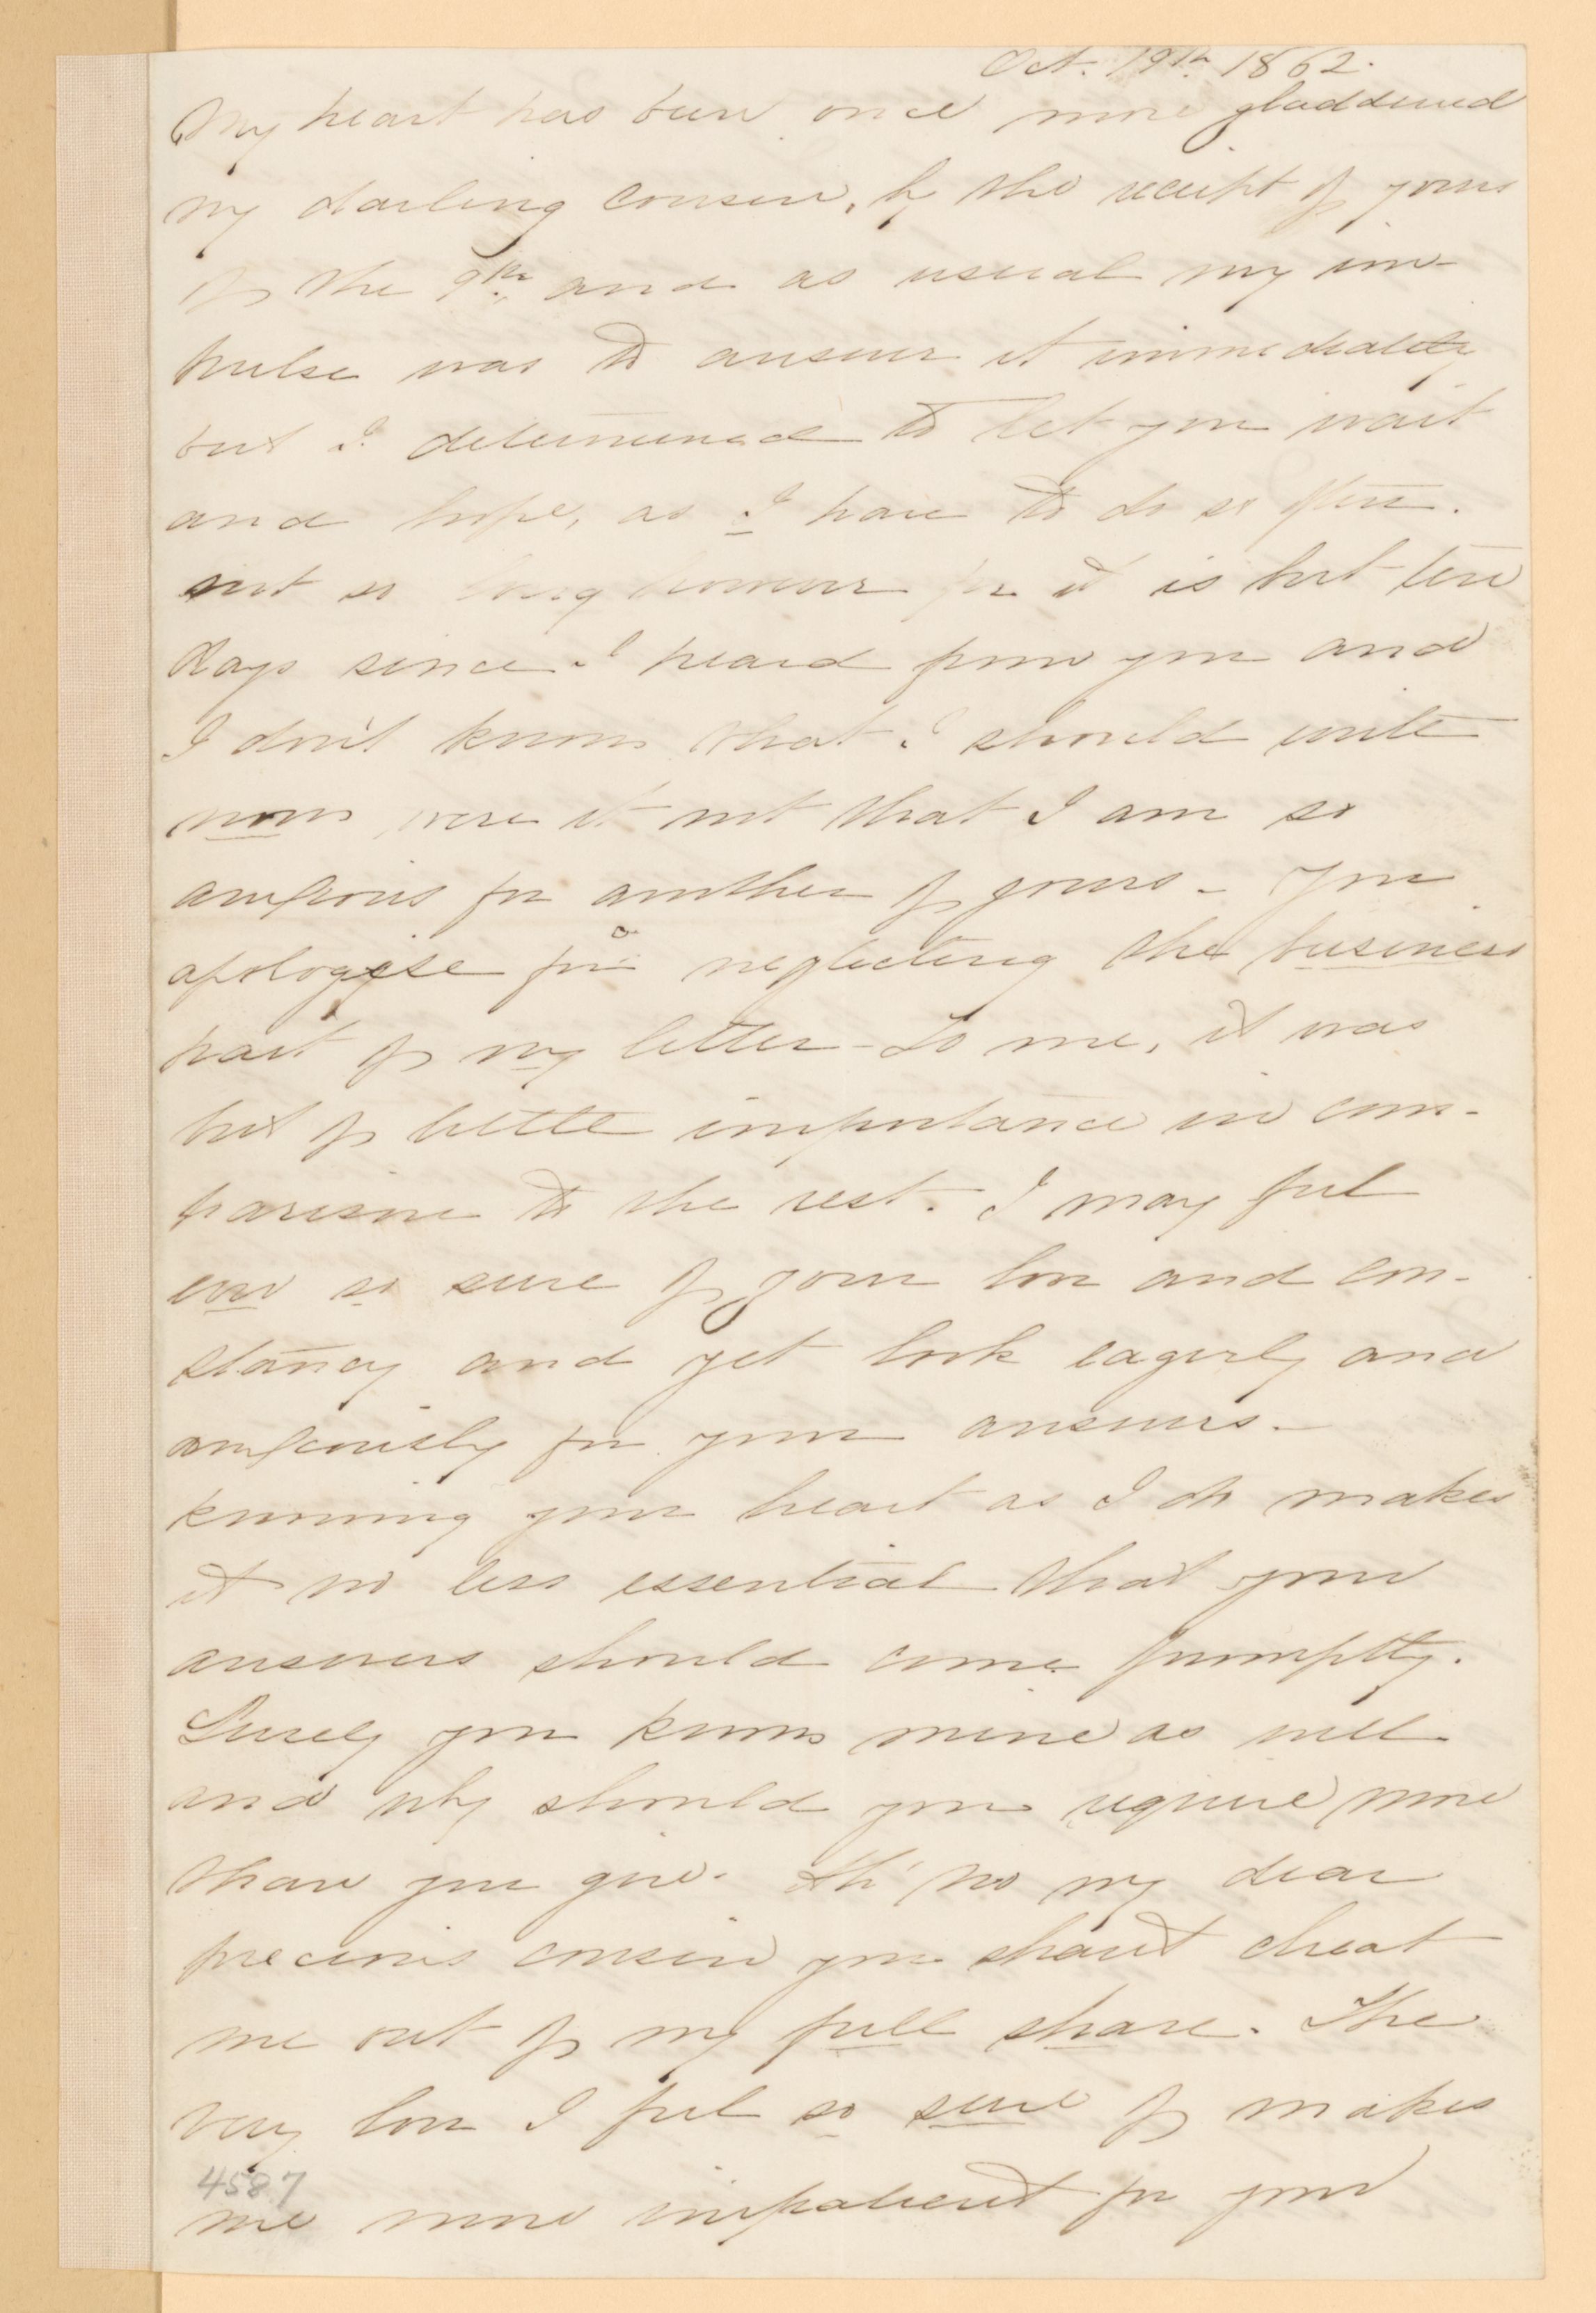 Oct. 19th 1862.
My heart has been once more gladdened
my darling cousin, by the receipt of yours
of the 9th, and as usual my im-
pulse was to answer it immediately
but I determined to let you wait
and hope, as I have to do so often.
not so long however for it is but ten
days since I heard from you and
I don't know that I should write
now were it not that I am so
anxious for another of yours - You
apologise for neglecting the business
part of my letter - To me, it was
but of little importance in com-
parison to the rest. I may feel
ever so sure of your love and con-
stancy and yet look eagerly and
anxiously for your answers. -
knowing your heart as I do makes
it no less essential that your
answers should come promptly.
Surely you know mine as well
and why should you require more
than you give. Ah' no my dear
precious cousin you shan't cheat
me out of my full share. The
very love I feel so sure of makes
4587
me more impatient for your